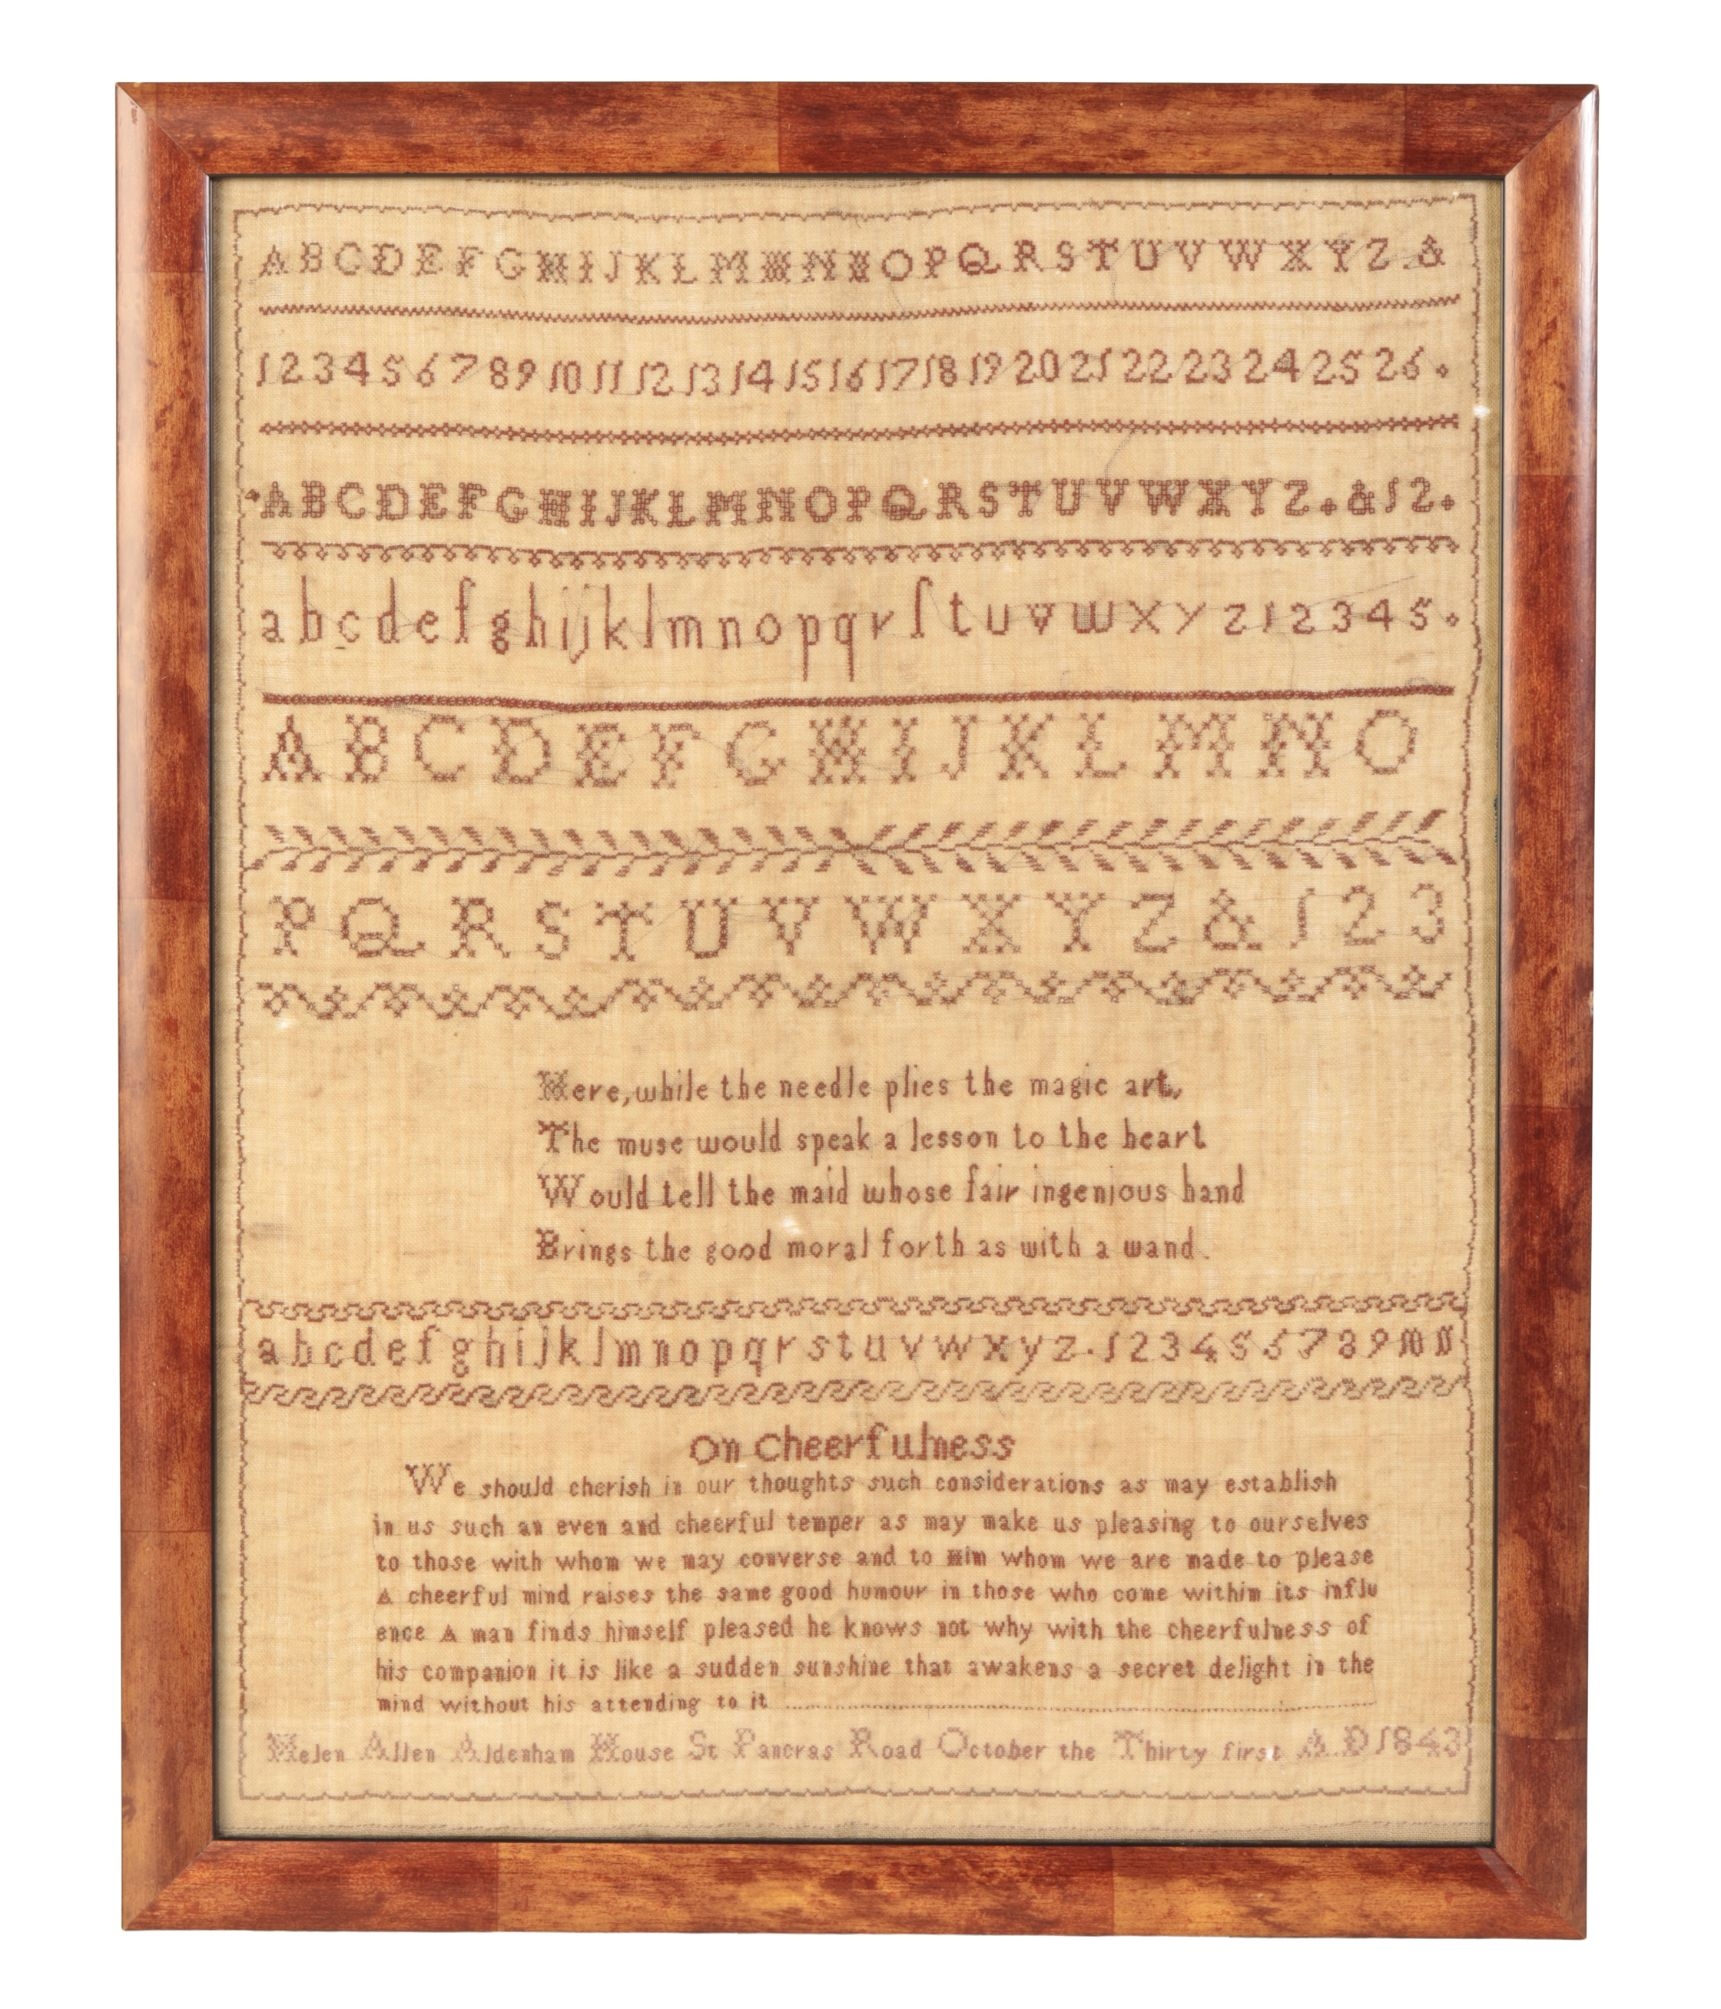 A B C D E F G H I J K L M H N N O P Q R S T U V W X Y Z &
1 2 3 4 5 6 7 8 9 10 11 12 13 14 15 16 17 18 19 20 21 22 23 24 25 26.
A B C D E F G H I J K L M N O P Q R S T U V W X Y Z + & 1 2 +
a b c d e f g h i j k l m n o p q r ſ t u v w x y z 1 2 3 4 5.
A B C D E F G H I J K L M N O
P Q R S T U V W X Y Z & 1 2 3
Here, while the needle plies the magic art,
The muse would speak a lesson to the heart
Would tell the maid whose fair ingenious hand
Brings the good moral forth as with a wand.
a b c d e f g h i j k l m n o p q r s t u v w x y z . 1 2 3 4 5 6 7 8 9 10 11
On Cheerfulness
We should cherish in our thoughts such considerations as may establish
in us such an even and cheerful temper as may make us pleasing to ourselves
to those with whom we may converse and to Him whom we are made to please
A cheerful mind raises the same good humour in those who come within its influ
ence A man finds himself pleased he knows not why with the cheerfulness of
his companion it is like a sudden sunshine that awakens a secret delight in the
mind without his attending to it
Helen Allen Aldenham House St Pancras Road October the Thirty first A D 1843